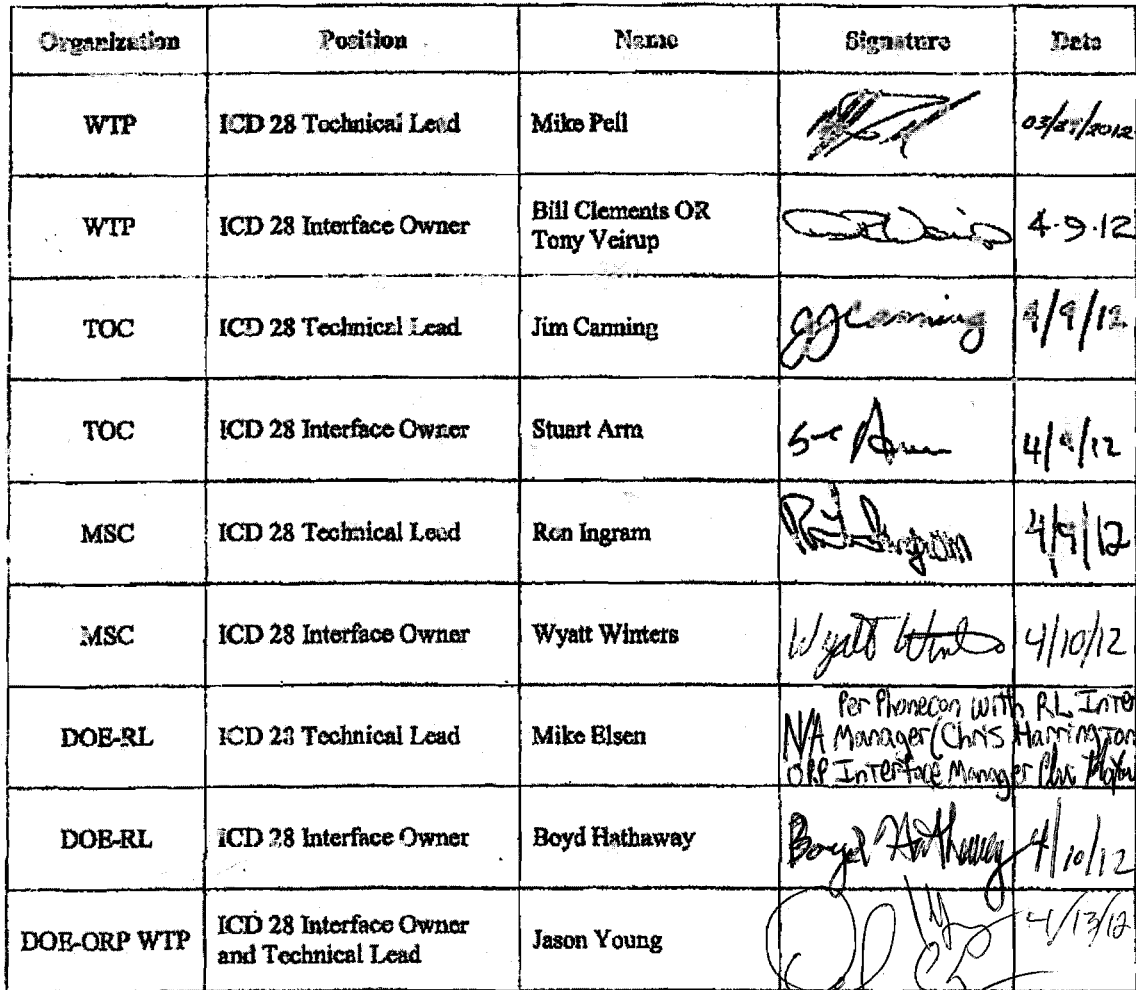 Organization Position Name Signature Date
WTP ICD 28 Technical Lead Mike Pell 03/27/2012
WTP ICD 28 Interface Owner Bill Clements OR
Tony Veirup 4-9-12
TOC ICD 28 Technical Lead Jim Canning JJCanning 4/9/12
TOC ICD 28 Interface Owner Stuart Arm Arm 4/9/12
MSC ICD 28 Technical Lead Ron Ingram Ingram 4/9/12
MSC ICD 28 Interface Owner Wyatt Winters Wyatt 4/10/12
Per Phonecon with RL Inter
DOE-RL ICD 28 Technical Lead Mike Elsen N/A Manager (Chris Harrington
ORP Interface Manager
DOE-RL ICD 28 Interface Owner Boyd Hathaway Boyd Hathaway 4/10/12
DOE-ORP WTP ICD 28 Interface Owner
and Technical Lead Jason Young 4/13/12